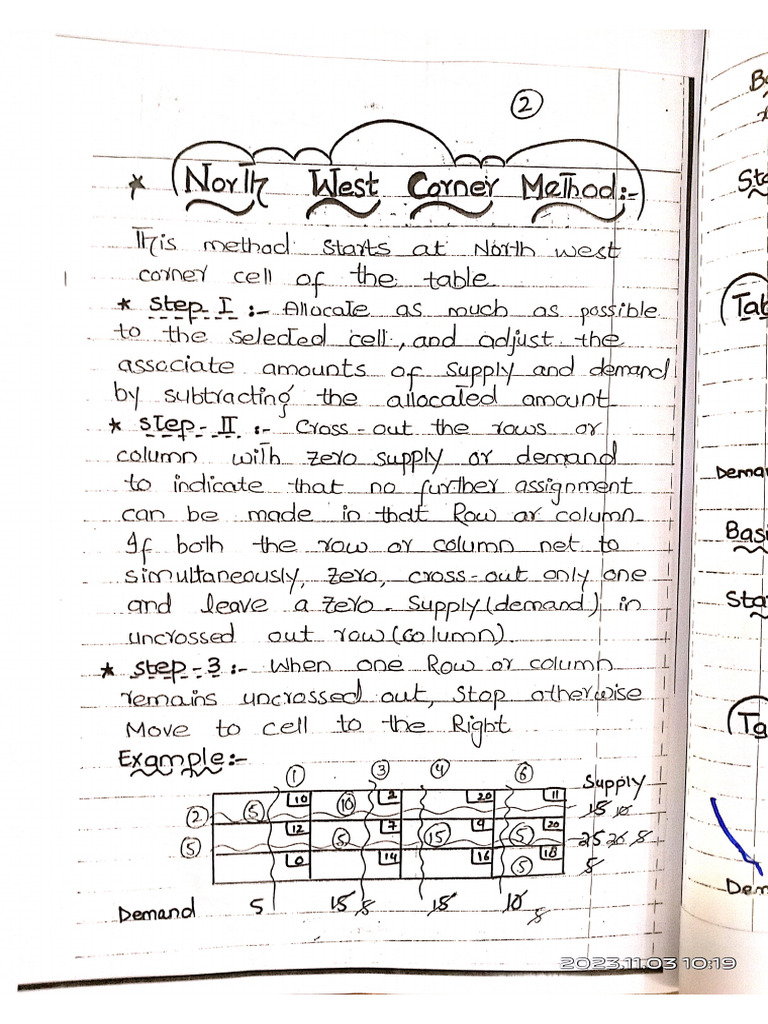 2
* North West Corner Method:-
This method starts at North west
corner cell of the table
* Step-I :- Allocate as much as possible
to the selected cell, and adjust the
associate amounts of supply and demand
by subtracting the allocated amount
* Step-II :- Cross-out the rows or
column with zero supply or demand
to indicate that no further assignment
can be made in that Row or column
If both the row or column net to
simultaneously, zero, cross-out only one
and leave a zero-supply (demand) in
uncrossed out row (column).
* Step-3 :- When one Row or column
remains uncrossed out, stop otherwise
Move to cell to the Right
Example:-
1 3 4 6 Supply
2 5 10 10 2 20 11 15 10
5 12 5 7 15 9 5 20 25 20 5
0 14 16 5 18 5
Demand 5 15 5 15 10 5
Sta
Tab
Dema
Basi
Sta
Ta
Dem
2023.11.03 10:19